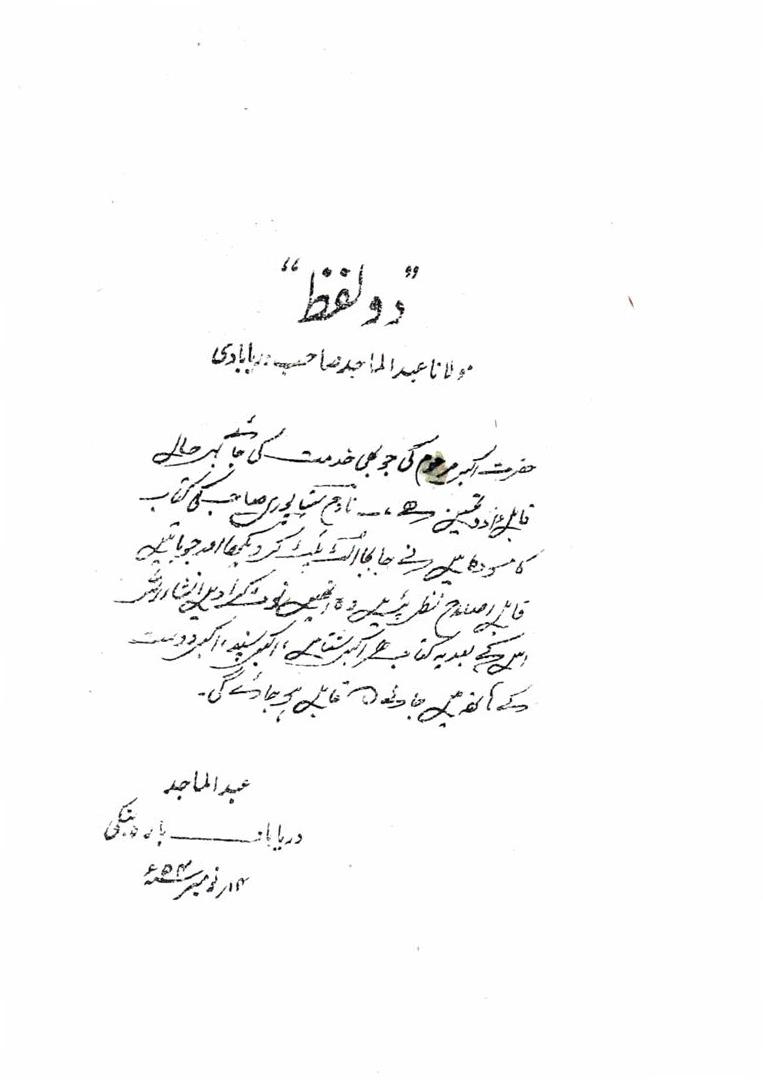 ”دو لفظ“
مولانا عبدالماجد صاحب دریابادی
حضرت اکبر مرحوم کی جو بھی خدمت کی جائے بہرحال
قابل داد و تحسین ہے ۔ صاحب کی کتاب
کا مسودہ میں نے جابجا الٹ پلٹ کر دیکھا اور جو باتیں
قابل اصلاح نظر پڑیں وہ انھیں نوٹ کرا دیں انشاء اللہ
اس کے بعد یہ کتاب ہر اکبر شناس، اکبر پسند، اکبر دوست
کے ہاتھ میں جانے کے قابل ہو جائے گی۔
عبدالماجد
دریاباد ـــــ بارہ بنکی
۱۴ر نومبر ۵۴ء